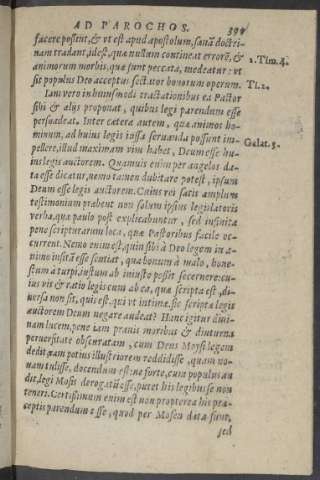 AD PAROCHOS. 399
facere possint, & vt est apud apostolum, sanā doctri-
nam tradant, id est, quæ nullum contineat errorē, &
animorum morbis, quæ sunt peccata, medeatur: vt
sit populus Deo acceptus sectator bonorum operum.
1. Tim. 4.
Ti. 2.
Iam vero in huiusmodi tractationibus ea Pastor
sibi & alijs proponat, quibus legi parendum esse
persuadeat. Inter cetera autem, quæ animos ho-
minum, ad huius legis iussa seruanda possunt im-
pellere, illud maximam vim habet, Deum esse hu-
ius legis auctorem. Quamuis enim per angelos da-
ta esse dicatur, nemo tamen dubitare potest, ipsum
Deum esse legis auctorem. Cuius rei satis amplum
testimonium præbent non solum ipsius legislatoris
verba, quæ paulo post explicabuntur, sed infinita
pene scripturarum loca, quæ Pastoribus facile oc-
current. Nemo enim est, quin sibi à Deo legem in a-
nimo insitā esse sentiat, qua bonum à malo, hone-
stum à turpi, iustum ab iniusto possit secernere: cu-
ius vis & ratio legis cum ab ea, quæ scripta est, di-
uersa non sit, quis est, qui vt intimæ, sic scriptæ legis
auctorem Deum negare audeat? Hanc igitur diui-
nam lucem, pene iam prauis moribus & diuturna
peruersitate obscuratam, cum Deus Moysi legem
dedit, eam potius illustriorem reddidisse, quam no-
uam tulisse, docendum est: ne forte, cum populus au
dit, legi Mosis derogatū esse, putet his legibus se non
teneri. Certissimum enim est non propterea his præ-
ceptis parendum esse, quod per Mosen data sunt,
sed
Galat. 3.